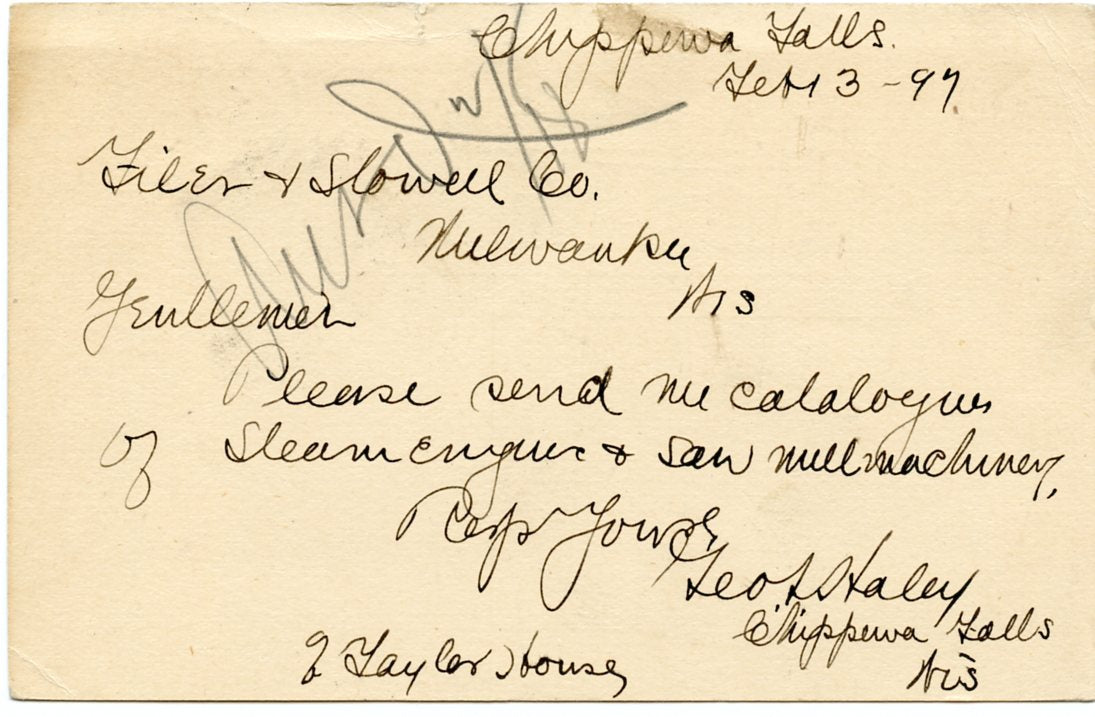 Chippewa Falls.
Feb 13 - 97
Filer & Stowell Co.
Milwaukee
Wis
Gentlemen
Please send me catalogues
of Steam Engines & Saw mill machinery,
Resp Yours,
Geo L Haley
Chippewa Falls
Wis
Taylor House,